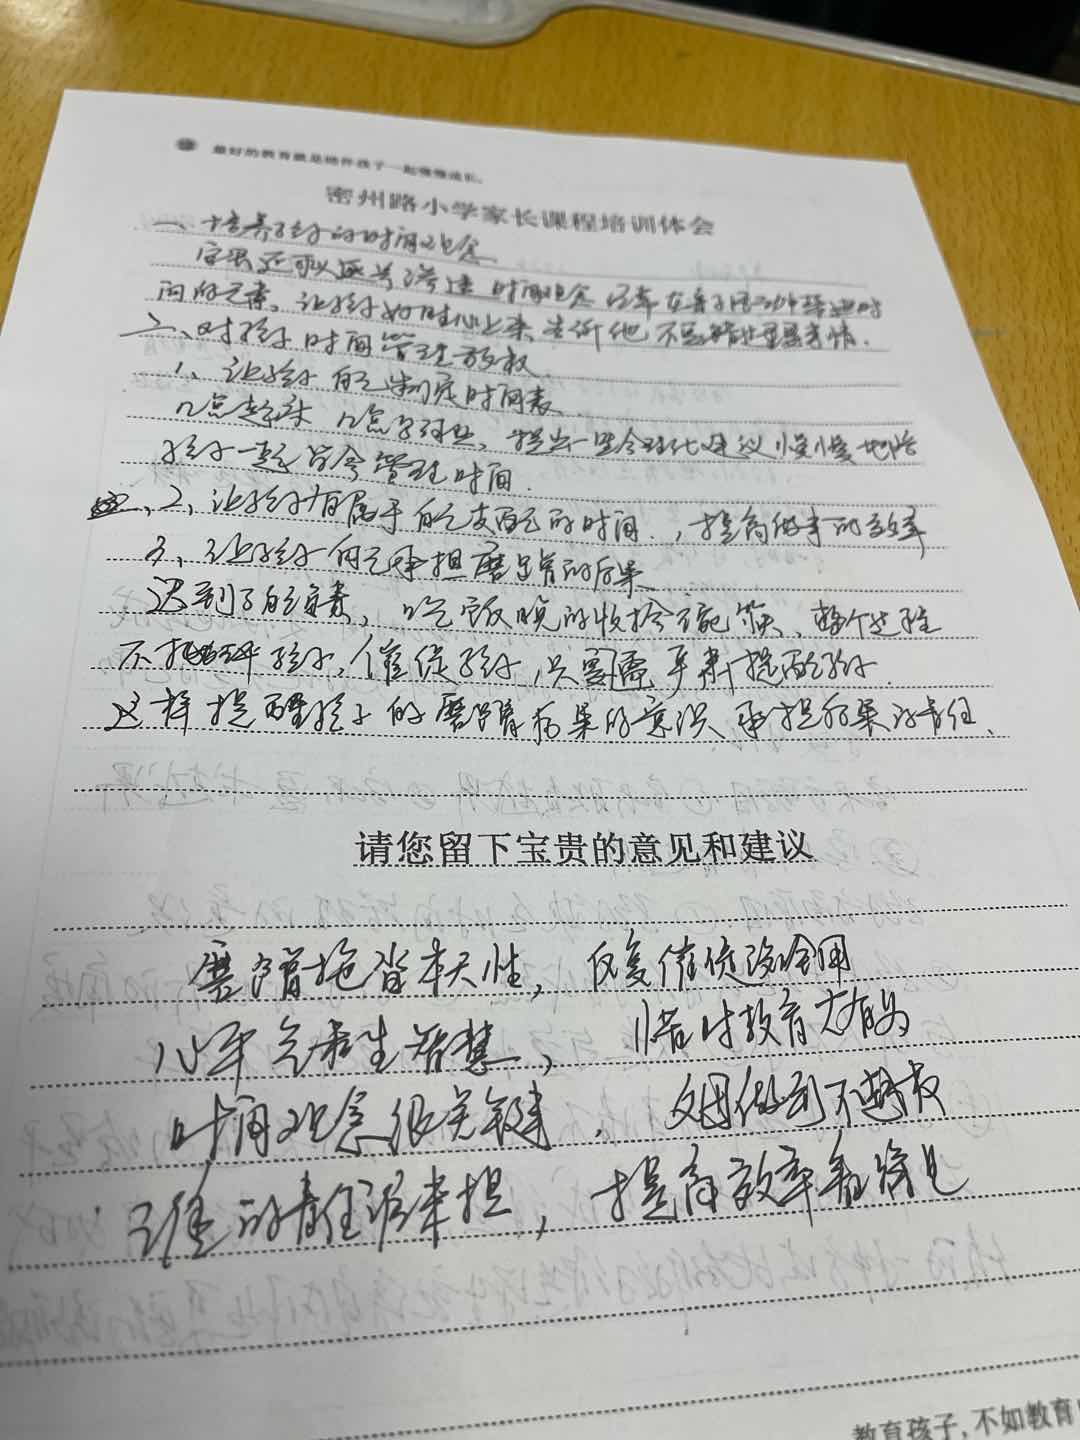 最好的教育就是陪伴孩子一起慢慢成长。
密州路小学家长课程培训体会
一、培养孩子的时间观念
时间观念 经常在亲子活动中
间的元素。让孩子 告诉他 重要事情.
二、对孩子时间管理放权.
1、让孩子自己制定时间表、
几点起床 几点写作业、提出一些合理化建议慢慢地
孩子一起学会管理时间.
2、让孩子有属于自己支配的时间.,提高做事的效率
3、让孩子自己承担磨蹭的后果、
迟到了自己负责, 吃饭晚的收拾碗筷、整个过程
不批评孩子,催促孩子,只需要平静提醒孩子.
这样提醒孩子的磨蹭后果的意识 承担后果的责任、
请您留下宝贵的意见和建议
磨蹭拖沓本天性, 反复催促没啥用
心平气和生智慧, 惜时教育大有为
时间观念很关键, 文图做到不越权
谁的责任谁来担, 提高效率看将见
教育孩子,不如教育